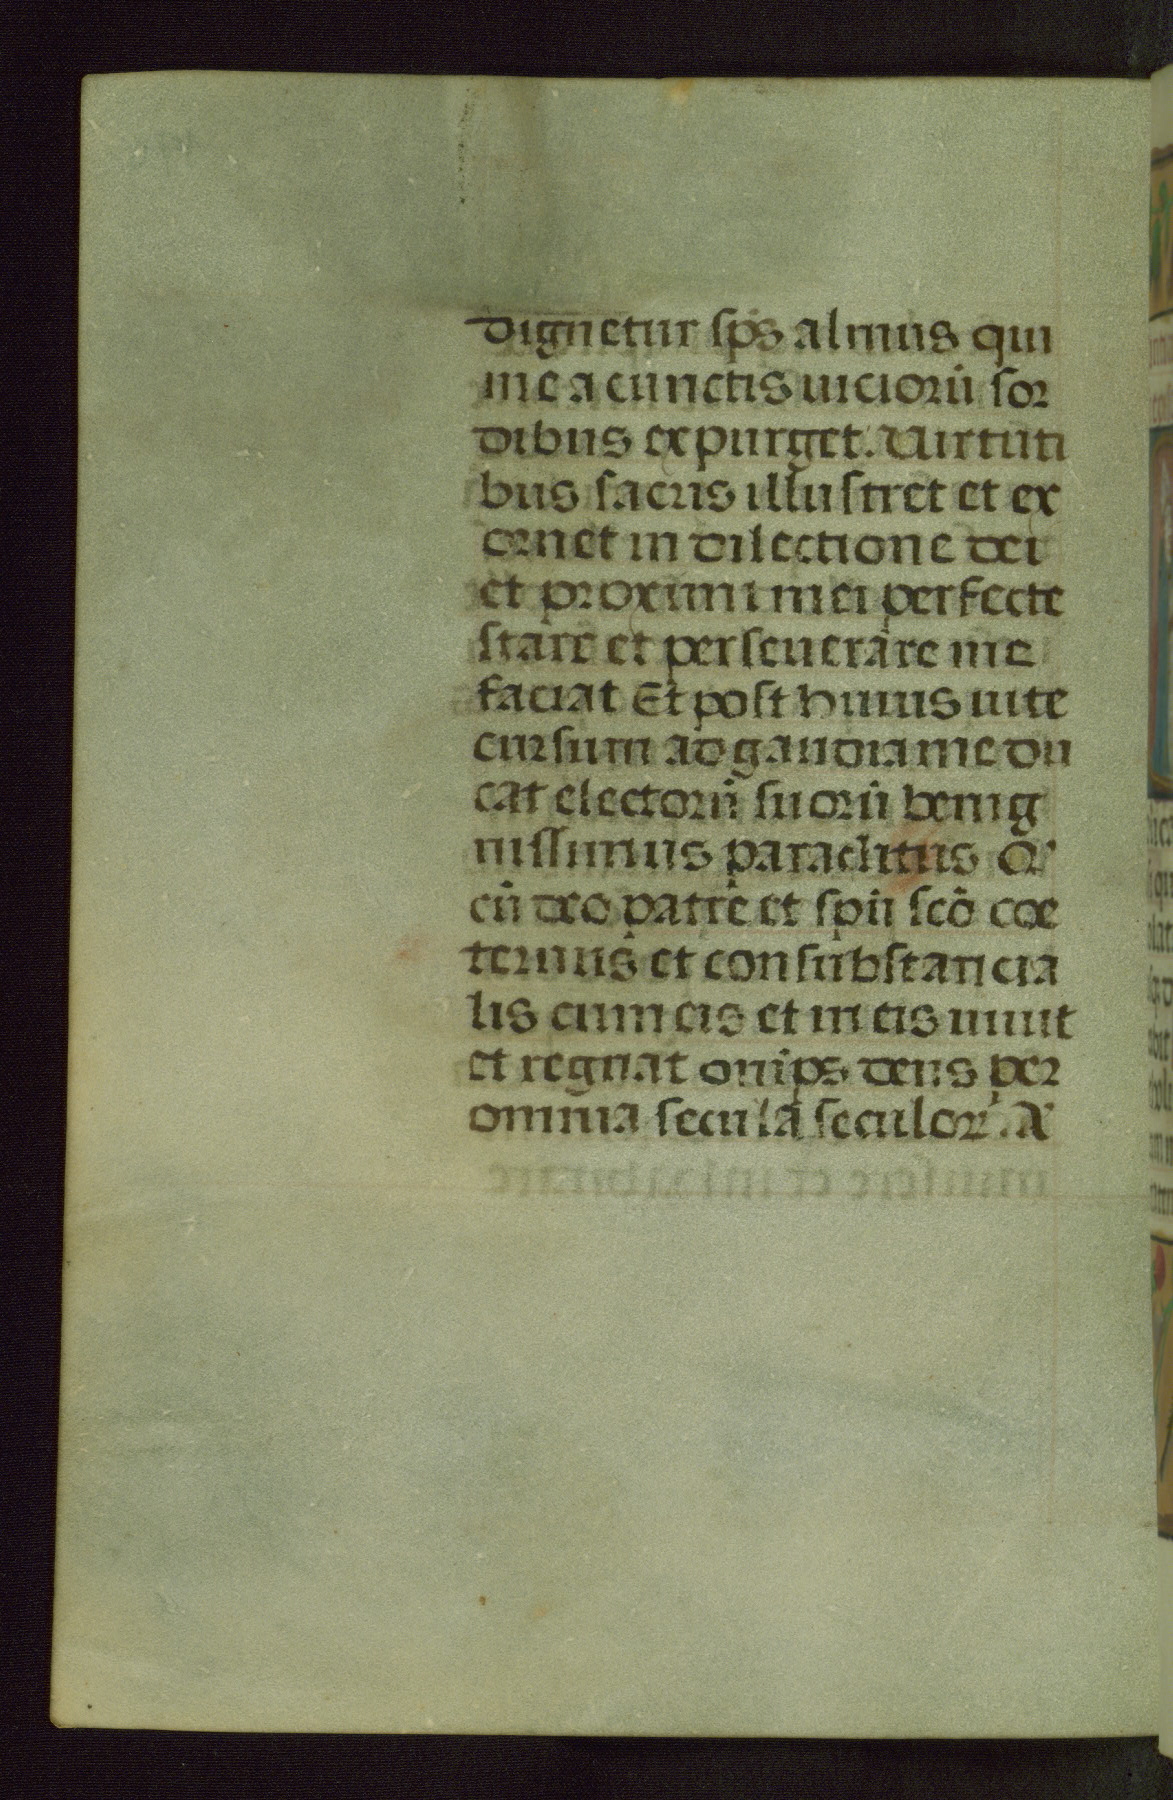 dignetur sp̄s almus qui
me a cunctis uicioru̅ sor
dibus expurget. Uirtuti
bus sacris illustret et ex
ornet in dilectione dei
et proximi mei perfecte
stare et perseuerare me
faciat Et post huius uite
cursum ad gaudia me du
cat electoru̅ suoru̅ benig
nissimus paraclitus Q'
cu̅ deo patre et spu̅ sco̅ coe
ternus et consubstancia
lis cum eis et in eis uiuit
et regnat om̅ps deus per
omnia secula seculor'. A'